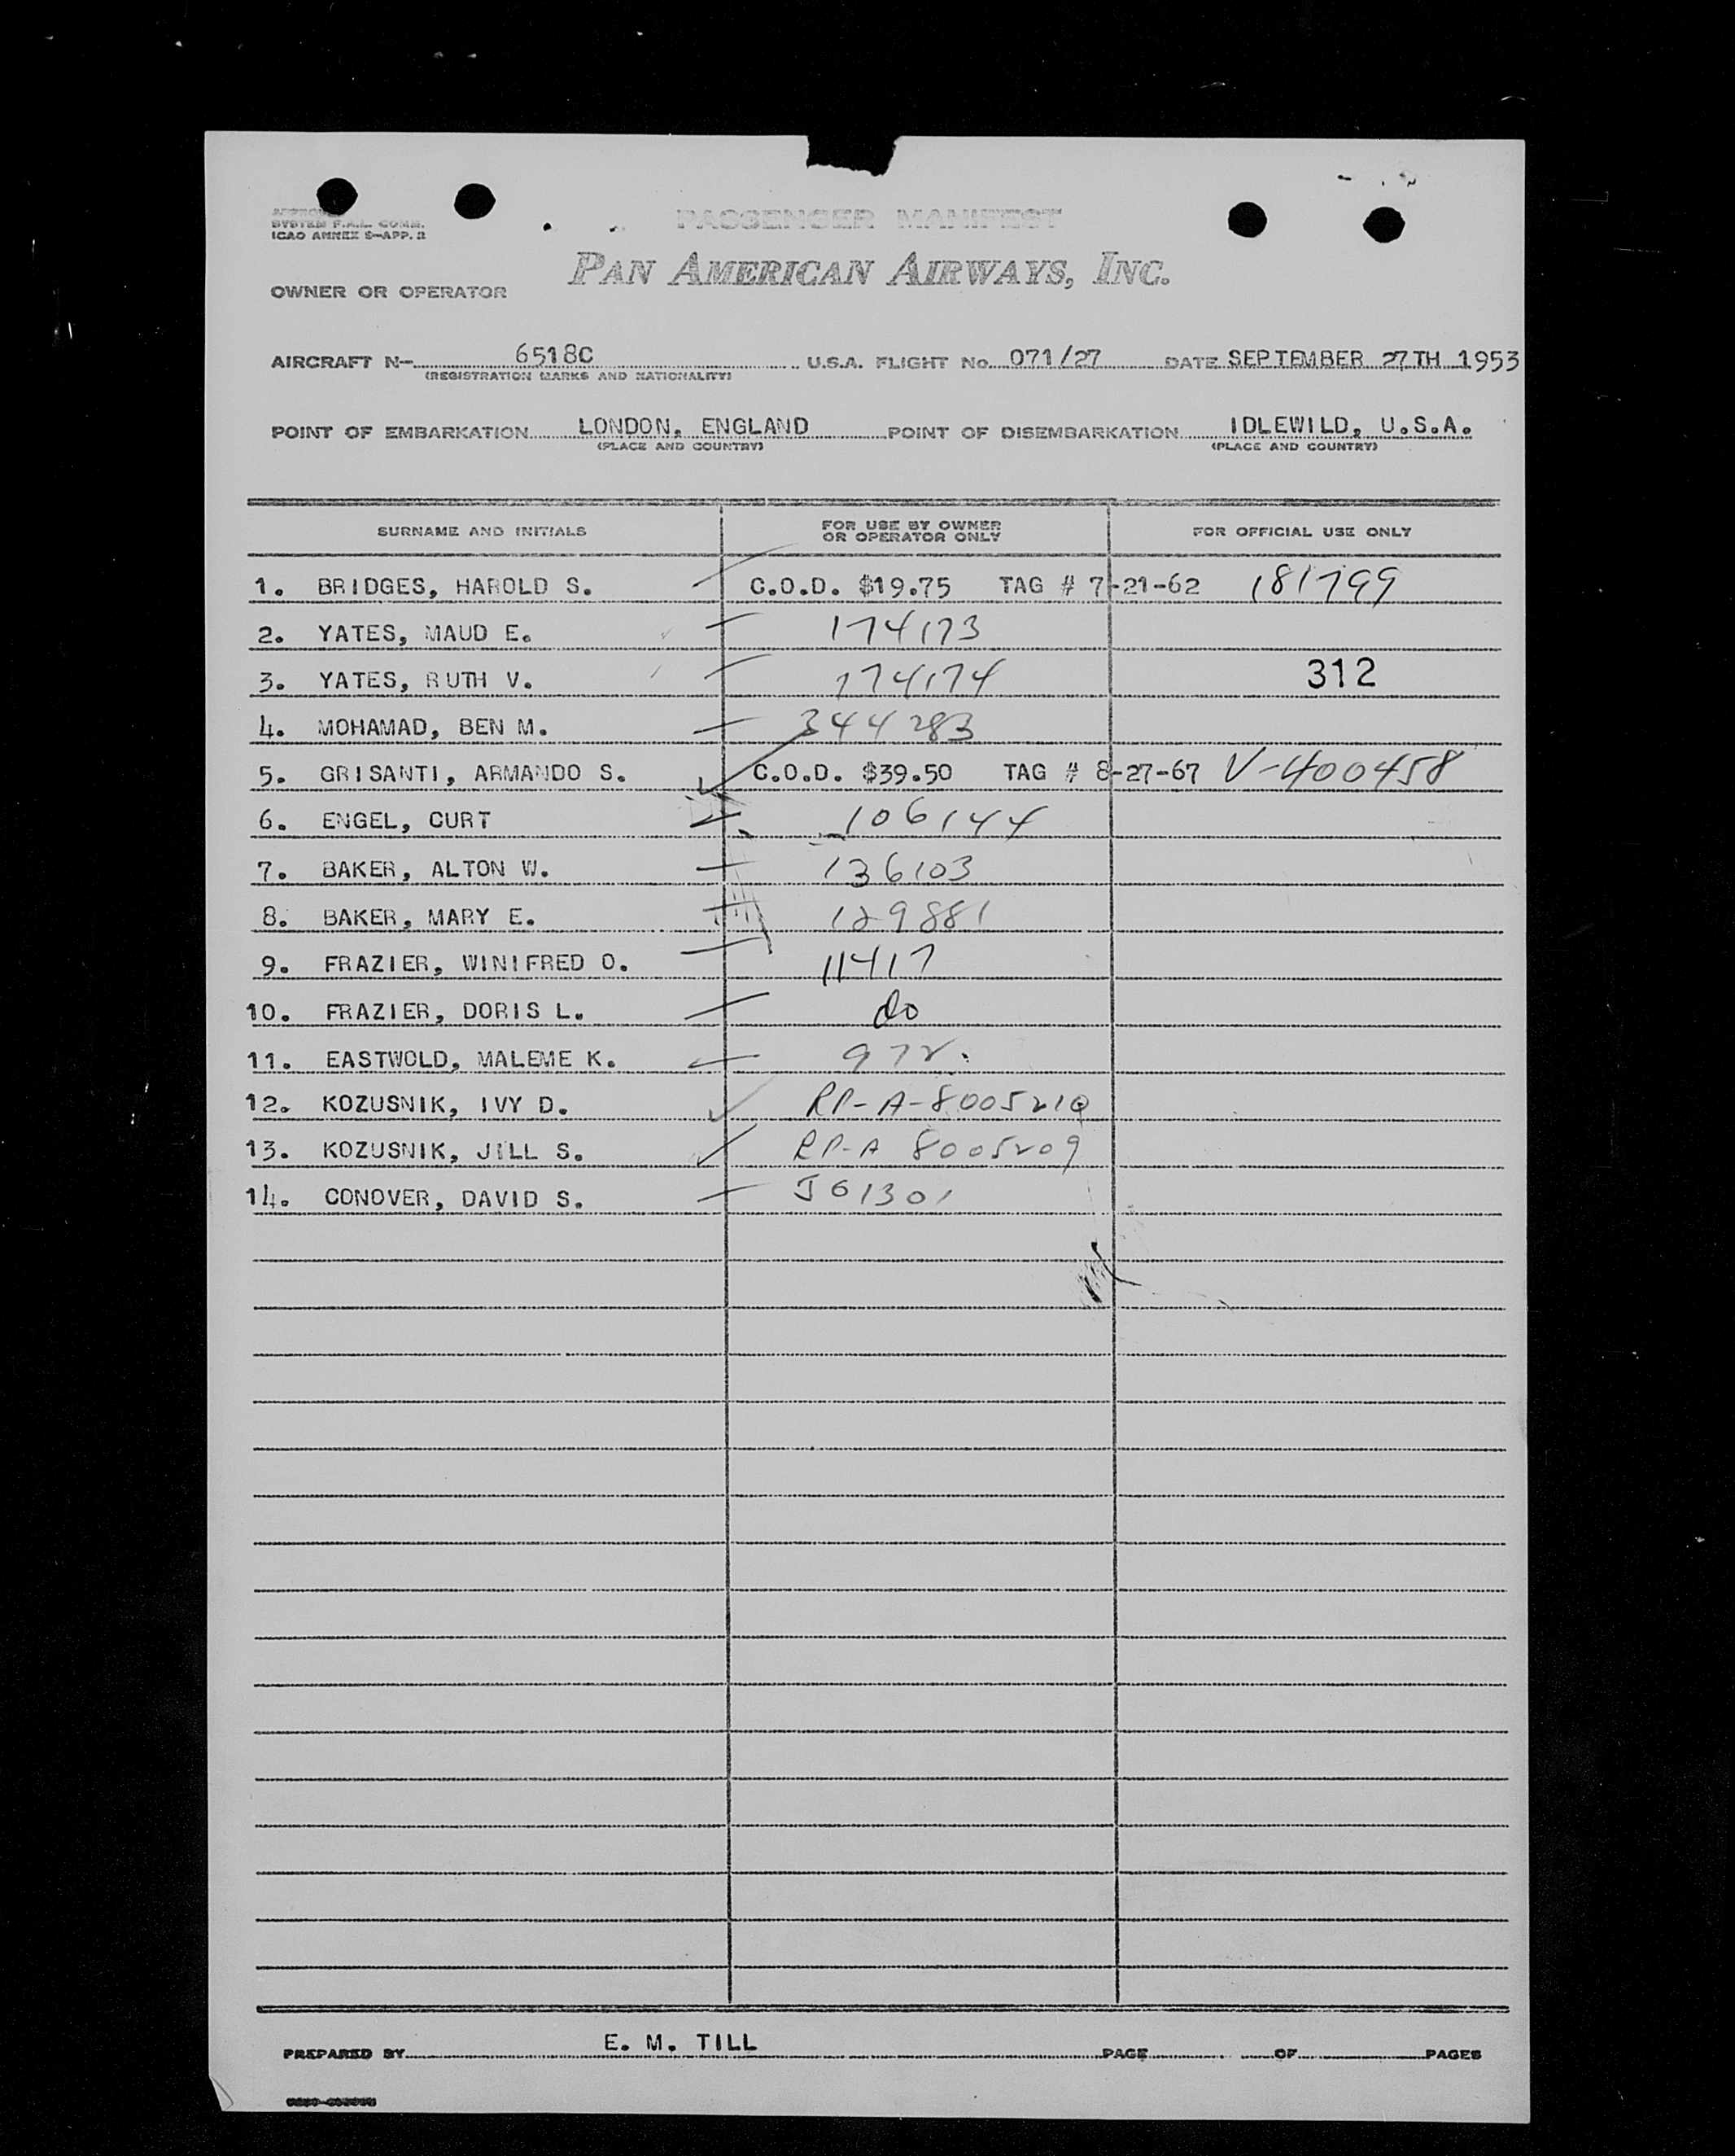 SYSTEM F.A.L. COMM.
ICAO ANNEX 9-APP. 2
PASSENGER MANIFEST
PAN AMERICAN AIRWAYS, INC.
OWNER OR OPERATOR
AIRCRAFT N- 6518C U.S.A. FLIGHT No. 071/27 DATE SEPTEMBER 27TH 1953
(REGISTRATION MARKS AND NATIONALITY)
POINT OF EMBARKATION LONDON, ENGLAND POINT OF DISEMBARKATION IDLEWILD, U.S.A.
(PLACE AND COUNTRY) (PLACE AND COUNTRY)
SURNAME AND INITIALS FOR USE BY OWNER OR OPERATOR ONLY FOR OFFICIAL USE ONLY
1. BRIDGES, HAROLD S. C.O.D. $19.75 TAG # 7-21-62 181799
2. YATES, MAUD E. 174173
3. YATES, RUTH V. 174174 312
4. MOHAMAD, BEN M. 344283
5. GRISANTI, ARMANDO S. C.O.D. $39.50 TAG # 8-27-67 V-400458
6. ENGEL, CURT 106144
7. BAKER, ALTON W. 136103
8. BAKER, MARY E. 129881
9. FRAZIER, WINIFRED O. 11417
10. FRAZIER, DORIS L. do
11. EASTWOLD, MALEME K. 972.
12. KOZUSNIK, IVY D. RP-A-8005210
13. KOZUSNIK, JILL S. RP-A 8005209
14. CONOVER, DAVID S. J61301
PREPARED BY E. M. TILL PAGE OF PAGES